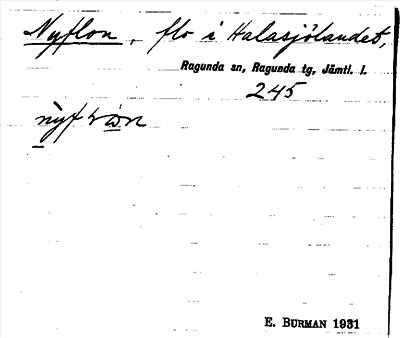 Nyflon, flo i Halasjölandet,
Ragunda sn, Ragunda tg, Jämtl. l.
245
E. BURMAN 1931